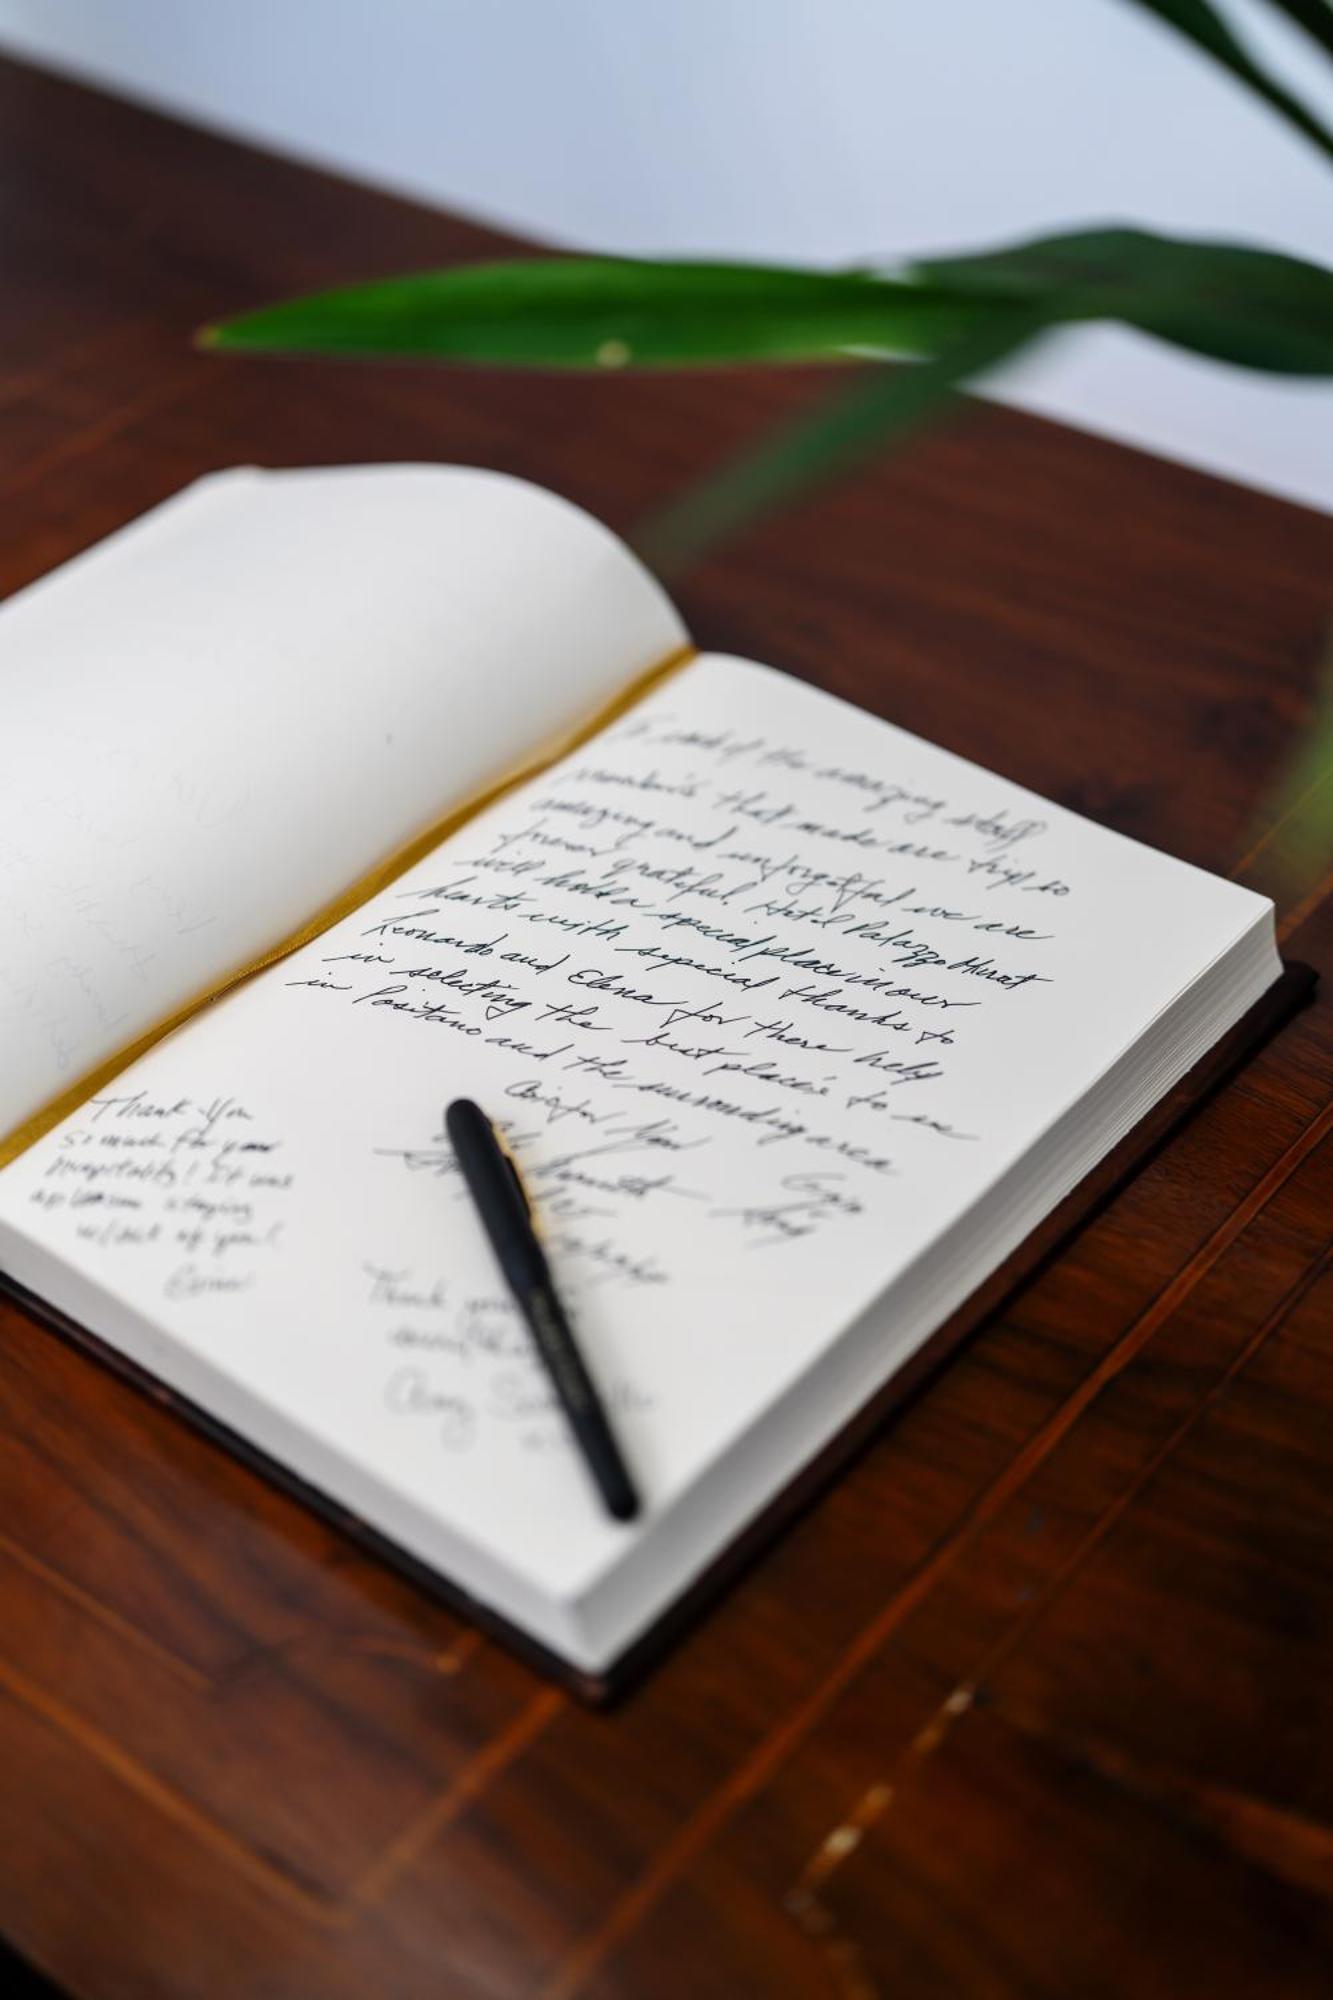 To each of the amazing staff
that made are trip so
amazing and unforgetful we are
forever grateful. Hotel Palazzo Murat
will hold a special place in our
hearts with sepecial thanks to
Leonardo and Elena for there help
in selecting the best places to in
in Positano and the surronding area
Thank You
So much for your
hospitality! It was
a pleasure staying
w/all of you!
Thank you
Amy